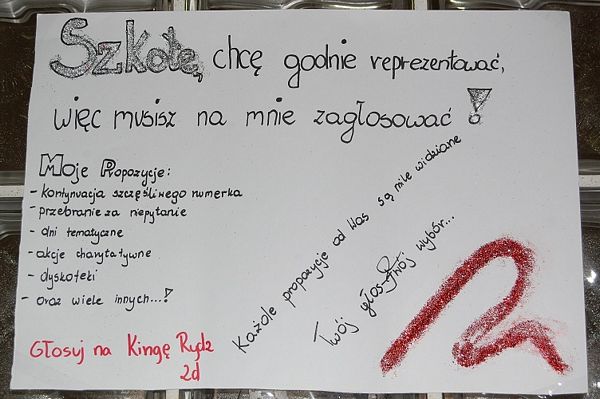 Szkołę, chcę godnie reprezentować,
więc musisz na mnie zagłosować!
Moje Propozycje:
- kontynuacja szczęśliwego numerka
- przebranie za niepytanie
- dni tematyczne
- akcje charytatywne
- dyskoteki
- oraz wiele innych...!
Każde propozycje od Was są mile widziane
Twój głos-Twój wybór...
Głosuj na Kingę Rydz
2d